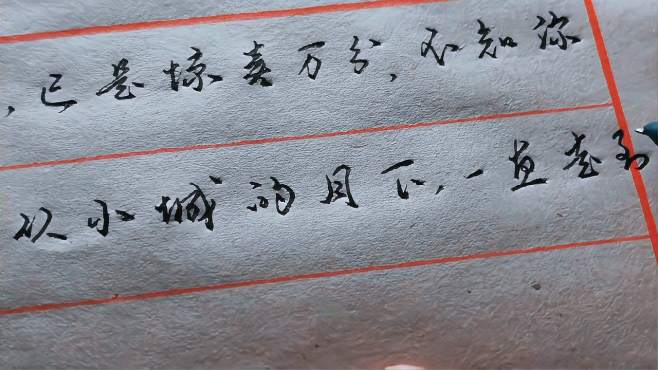 ，已是惊喜万分，不知你
以小城的月下，一直走到